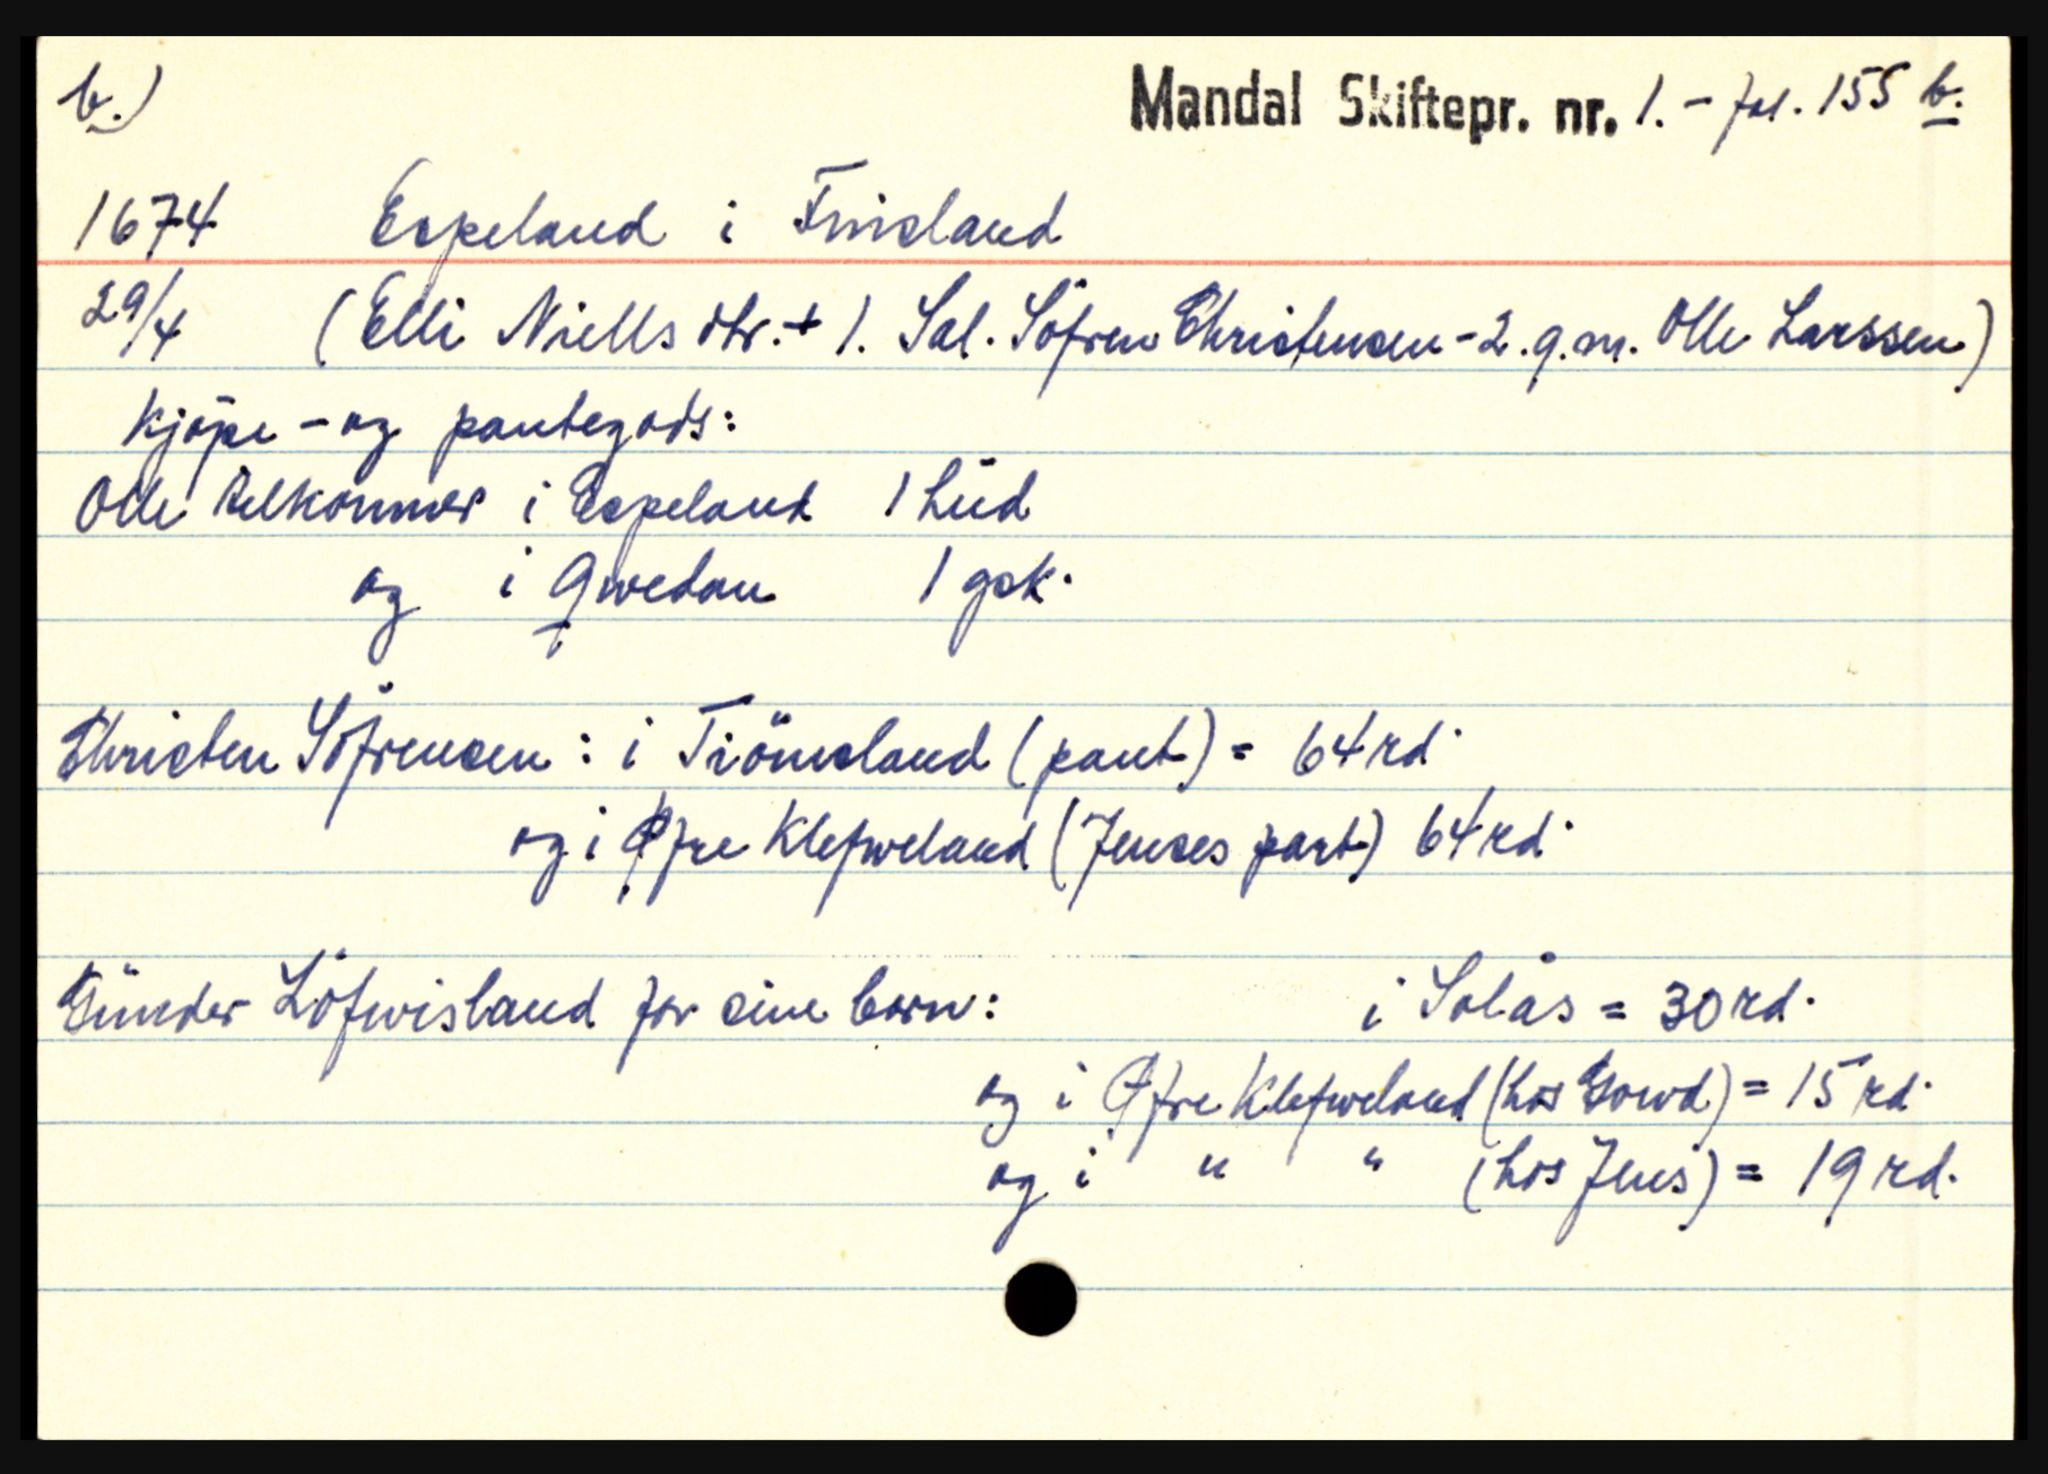 b.) Mandal Skiftepr. nr. 1. - fol. 155 b.
1674 Espeland i Finsland
29/4 (Elli Niells dtr. + 1. Sal. Söfren Christensen - 2. g.m. Olle Larssen)
Kjöpe - og pantegods:
Olle tilkommer i Espeland 1 hŭd
og i Qwedan 1 gsk.
Christen Söfrensen : i Trömsland (pant) = 64 rd.
og i Øfre Klefweland (Jenses part) 64 rd.
Gŭnder Löfwisland for sine born: i Solås = 30 rd.
og i Øfre Klefweland (hos Gowd) = 15 rd.
og i " " (hos Jens) = 19 rd.